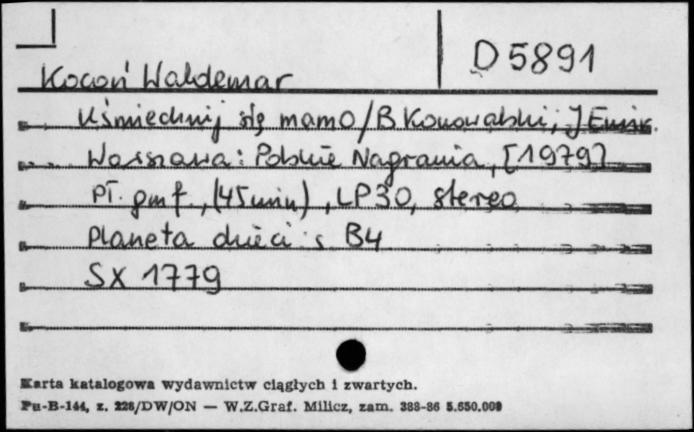 D 5891
Kocoń Waldemar
Uśmiechnij się mamo / B Konowalski, J Emir.
Warszawa : Polskie Nagrania, [1979]
Pł. gmf., (45 min), LP30, stereo
Planeta dzieci s. B4
SX 1779
Karta katalogowa wydawnictw ciągłych i zwartych.
Pu-B-144, z. 228/DW/ON — W.Z.Graf. Milicz, zam. 388-86 5.650.000